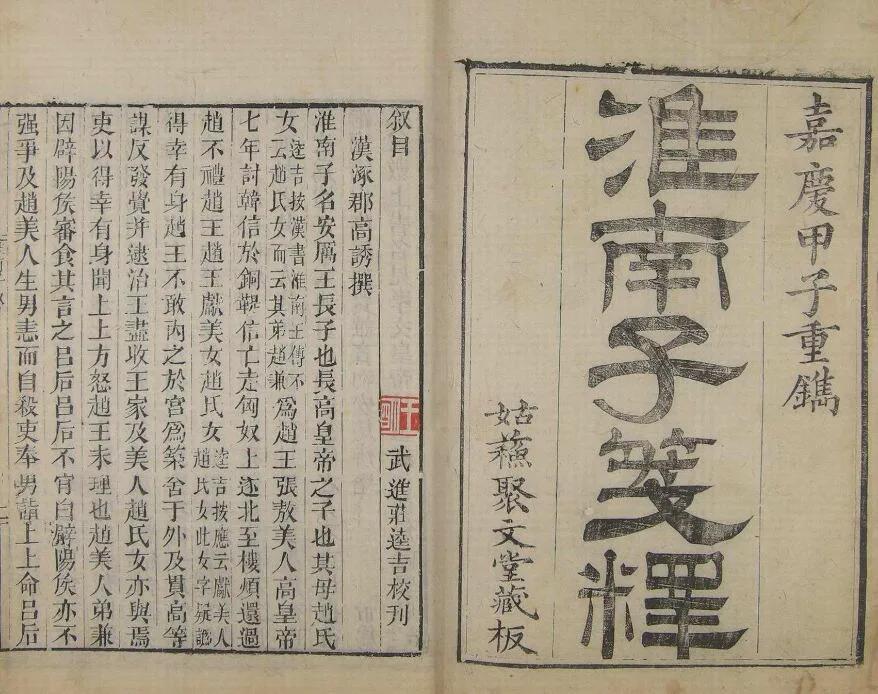 嘉慶甲子重鐫
淮南子箋釋
姑蘓聚文堂藏板
叙目 武進莊逵吉校刊
漢涿郡高誘撰
淮南子名安厲王長子也長高皇帝之子也其母趙氏
女逵吉按漢書淮南王傳不云趙氏女而云其弟趙兼為趙王張敖美人高皇帝
七年討韓信於銅鞮信亡走匈奴上遂北至樓煩還過
趙不禮趙王趙王獻美女趙氏女逵吉按應云獻美人趙氏女此女字疑譌
得幸有身趙王不敢內之於宮為築舍于外及貫高等
謀反發覺并逮治王盡收王家及美人趙氏女亦與焉
吏以得幸有身聞上上方怒趙王未理也趙美人弟兼
因辟陽侯審食其言之呂后呂后不肯白辟陽侯亦不
强爭及趙美人生男恚而自殺吏奉男詣上上命呂后